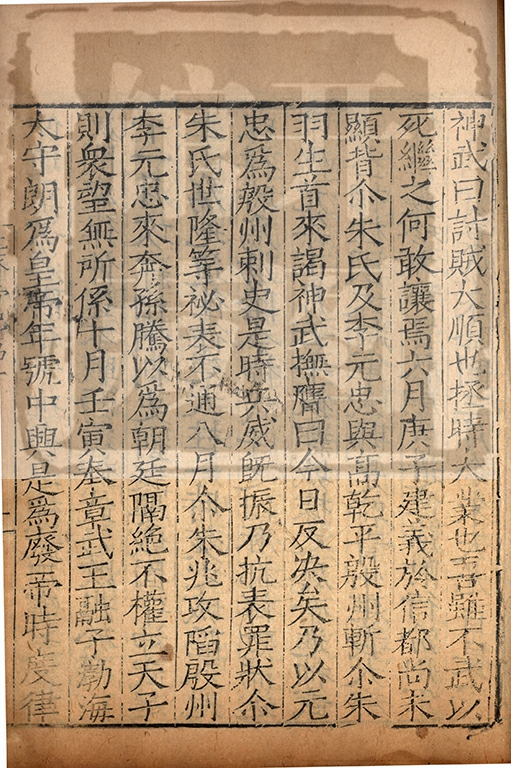 神武曰討賊大順也拯時大業也吾雖不武以
死繼之何敢讓焉六月庚子建義於信都尚未
顯背尒朱氏及李元忠與高乾平殷州斬尒朱
羽生首來謁神武撫膺曰今日反决矣乃以元
忠爲殷州刺史是時兵威旣振乃抗表罪狀尒
朱氏世隆等祕表不通八月尒朱兆攻陷殷州
李元忠來奔孫騰以爲朝廷隔絶不權立天子
則衆望無所係十月壬寅奉章武王融子渤海
太守朗爲皇帝年號中興是爲廢帝時度律